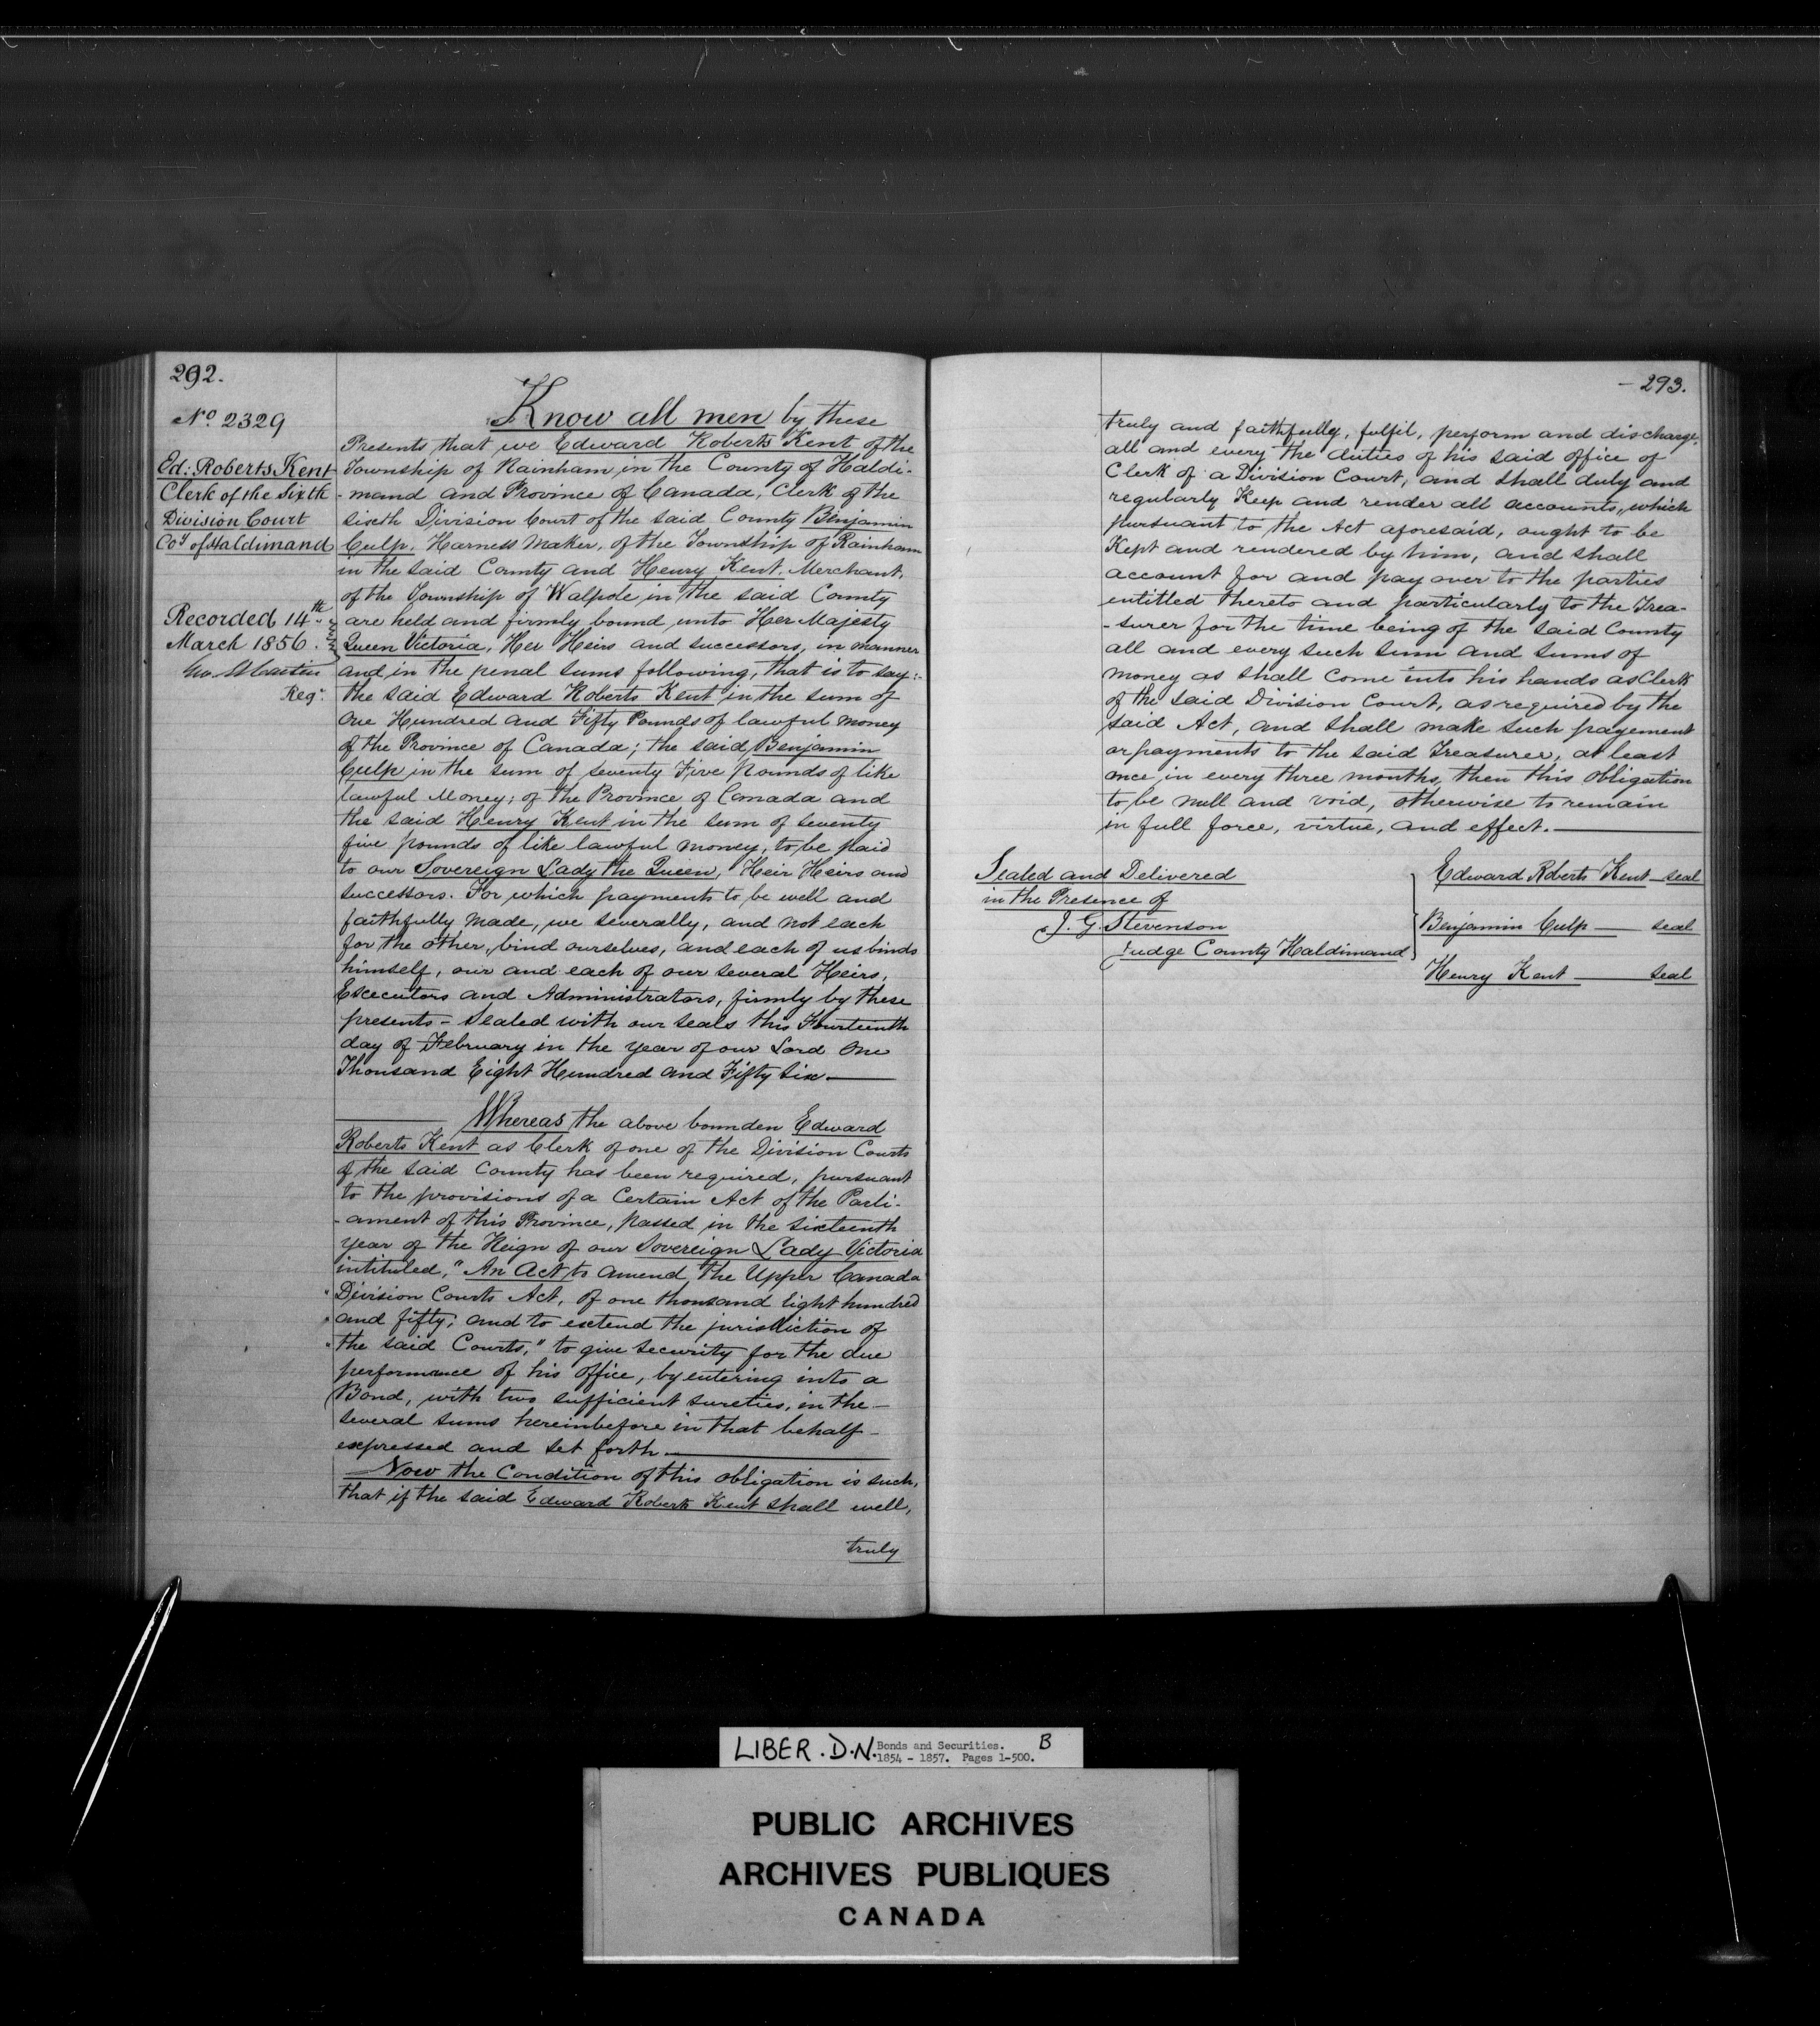 292.
No 2329
Ed: Roberts Kent
Clerk of the Sixth
Division Court
Coy of Haldimand
Recorded 14th
March 1856.
Reg:
Know all men by these
Presents that we Edward Roberts Kent of the
Township of Rainham, in the County of Haldi-
-mand and Province of Canada, Clerk of the
sixth Division Court of the said County Benjamin
Culp, Harness Maker, of the Township of Rainham
in the said County and Henry Kent, Merchant,
of the Township of Walpole in the said County
are held and firmly bound unto Her Majesty
Queen Victoria, Her Heirs and successors, in manner
and in the penal sums following, that is to say:-
the said Edward Roberts Kent in the sum of
One Hundred and Fifty Pounds of lawful money
of the Province of Canada; the said Benjamin
Culp in the sum of seventy Five Pounds of like
lawful Money; of the Province of Canada and
the said Henry Kent in the sum of seventy
five pounds of like lawful money, to be paid
to our Sovereign Lady the Queen, Heir Heirs and
successors. For which payments to be well and
faithfully made, we severally, and not each
for the other, bind ourselves, and each of us binds
himself, our and each of our several Heirs,
Executors and Administrators, firmly by these
presents - Sealed with our seals this Fourteenth
day of February in the year of our Lord One
Thousand Eight Hundred and Fifty six
Whereas the above bounden Edward
Roberts Kent as Clerk of one of the Division Courts
of the said County has been required, pursuant
to the provisions of a Certain Act of the Parli-
-ament of this Province, passed in the sixteenth
year of the Reign of our Sovereign Lady Victoria
intituled, "An Act to amend the Upper Canada
"Division Courts Act, of one thousand Eight hundred
"and fifty; and to extend the jurisdiction of
"the said Courts," to give security for the due
performance of his office, by entering into a
Bond, with two sufficient sureties, in the-
several sums hereinbefore in that behalf-
expressed and set forth.
Now the Condition of this obligation is such,
that if the said Edward Roberts Kent shall well,
truly
- 293.
truly and faithfully, fulfil, perform and discharge,
all and every the duties of his said office of
Clerk of a Division Court, and shall duly and
regularly Keep and render all accounts, which
pursuant to the Act aforesaid, ought to be
Kept and rendered by him, and shall
account for and pay over to the parties
entitled thereto and particularly to the Trea-
-surer for the time being of the said County
all and every such sum and sums of
money as shall come into his hands as Clerk
of the said Division Court, as required by the
said Act, and shall make such payement
or payments to the said Treasurer, at least
once in every three months, then this obligation
to be null and void, otherwise to remain
in full force, virtue, and effect.
Sealed and Delivered
in the Presence of
J. G. Stevenson
Judge County Haldimand
Edward Roberts Kent seal
Benjamin Culp seal
Henry Kent seal
LIBER . D.N. Bonds and Securities. B
1854 - 1857. Pages 1-500.
PUBLIC ARCHIVES
ARCHIVES PUBLIQUES
CANADA